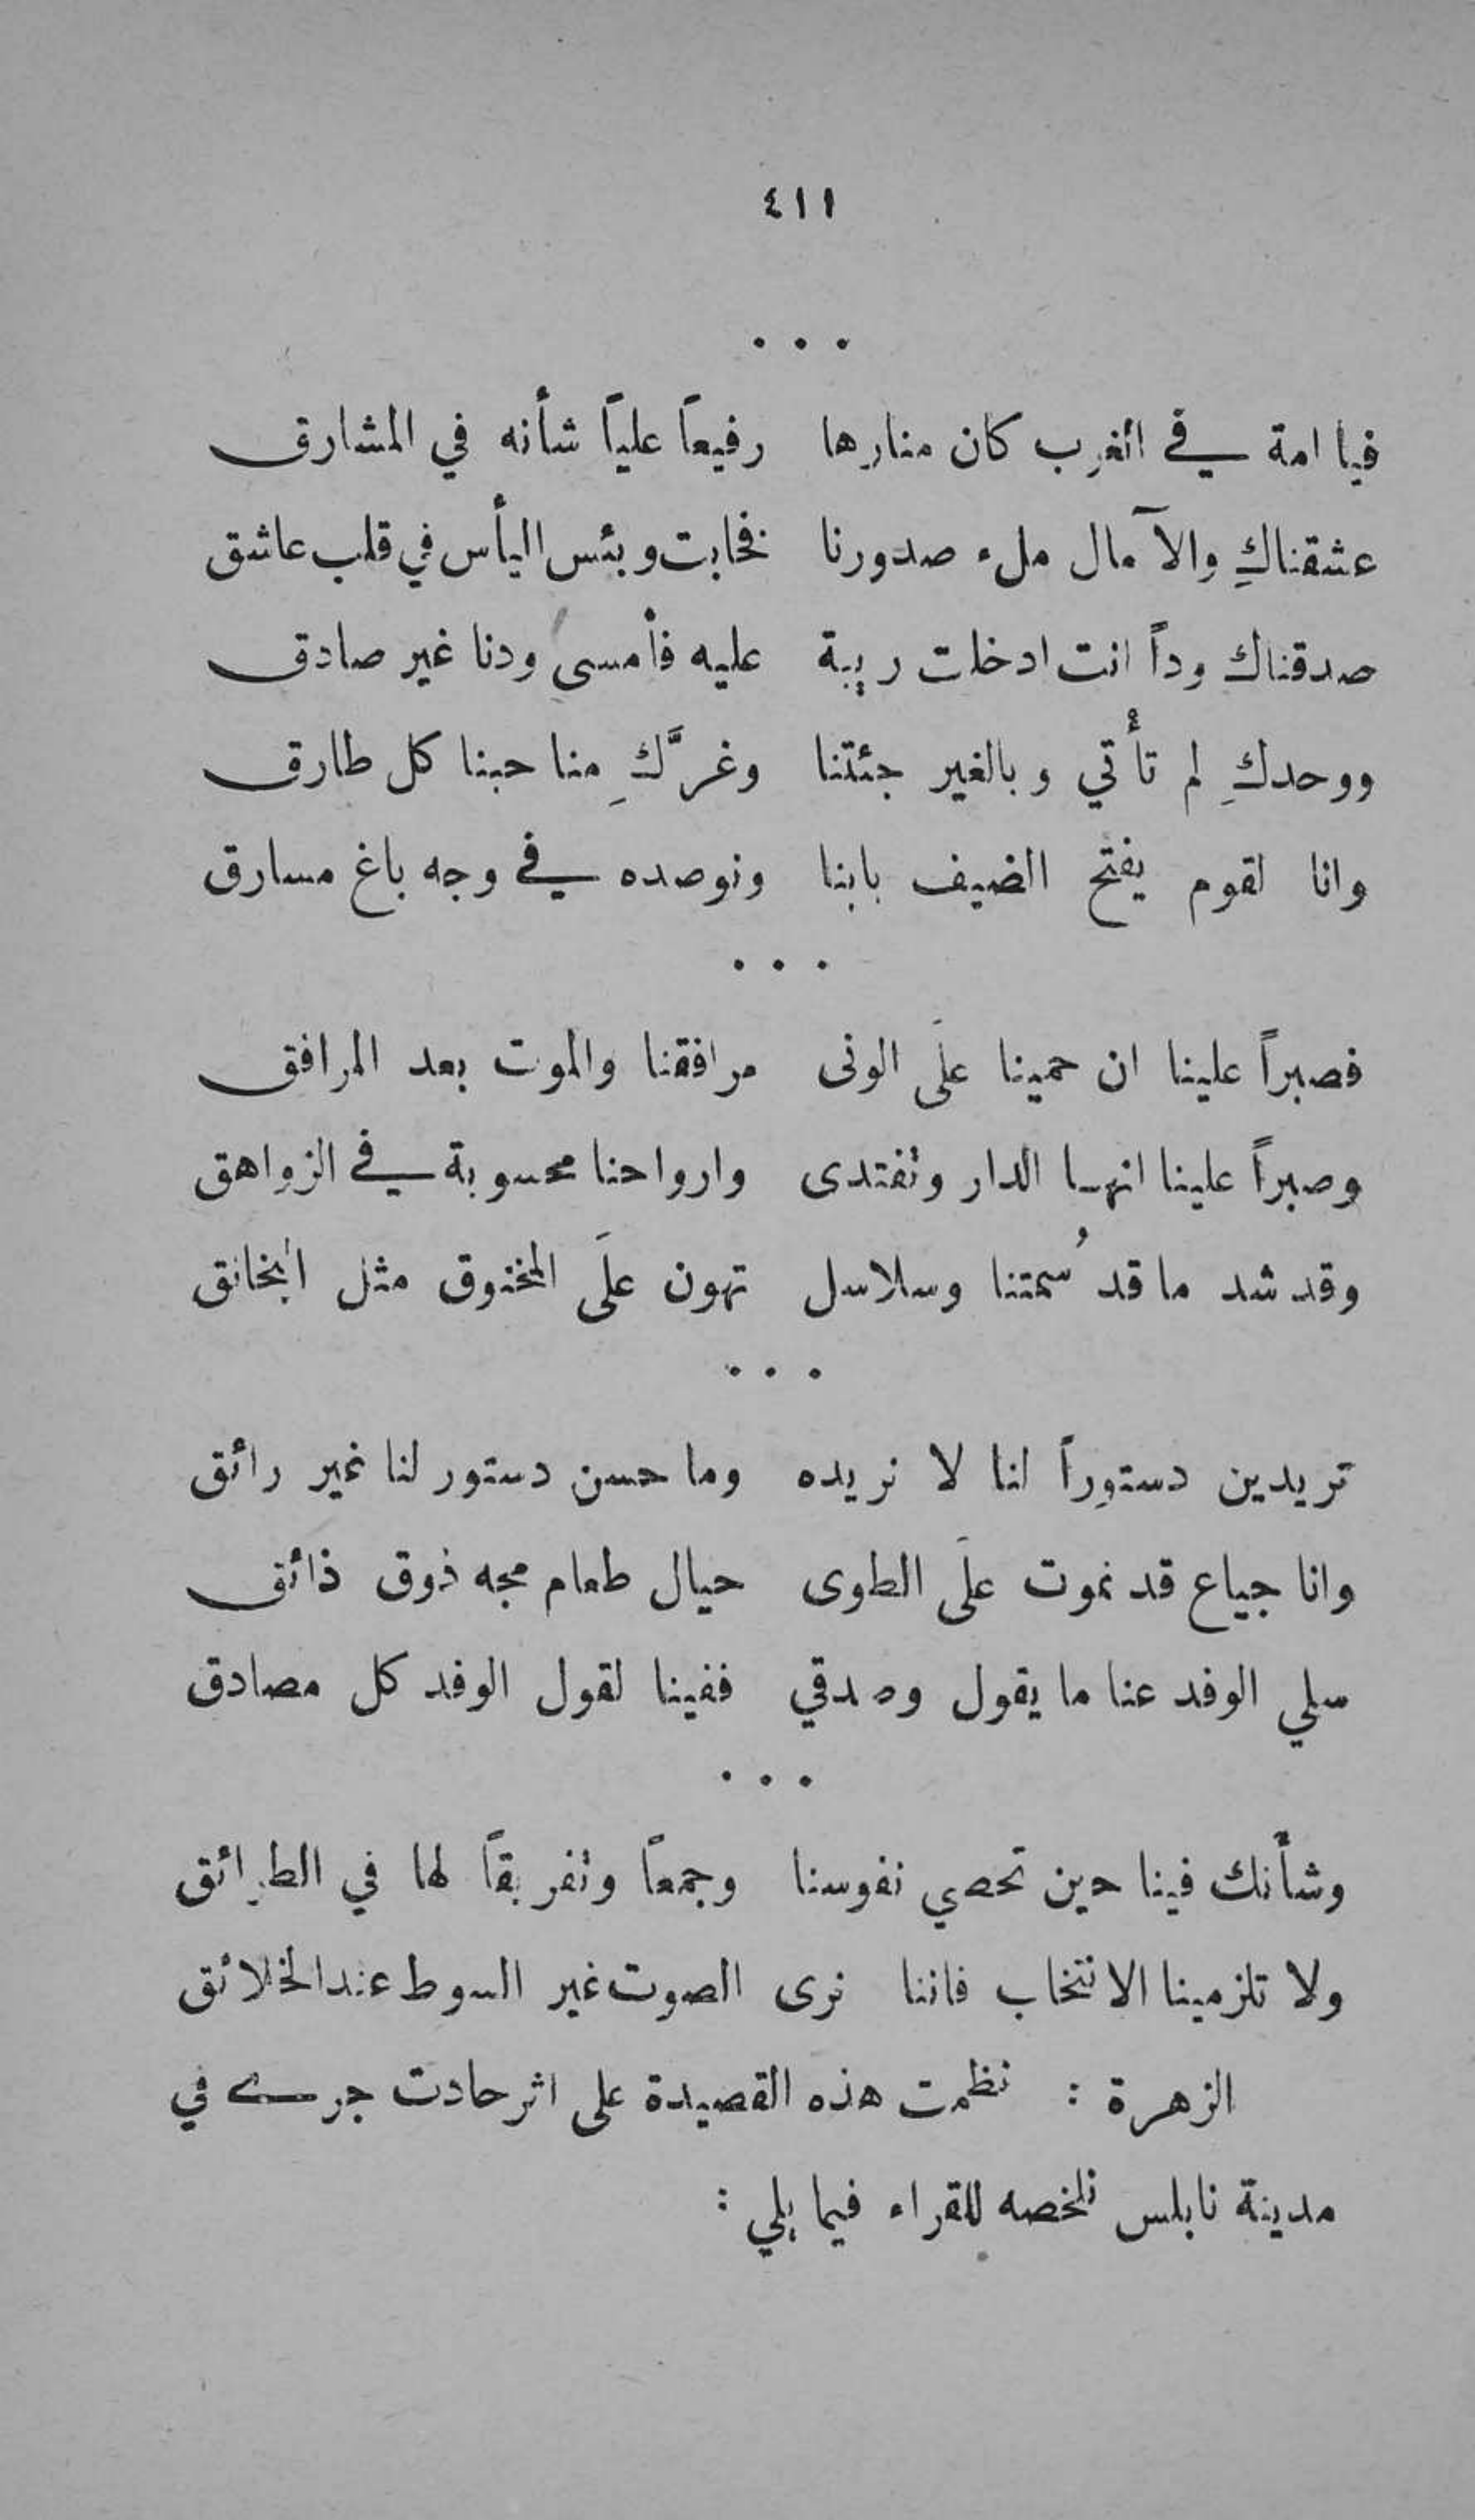 ٤١١
• • •
فيا امة في الغرب كان منارها رفيعاً علياً شأنه في المشارق
عشقناكِ والآمال ملء صدورنا فخابت وبئس اليأس في قلب عاشق
صدقناك وداً انت ادخلت ريبة عليه فأمسى ودنا غير صادق
ووحدكِ لم تأتي وبالغير جئتنا وغرَّكِ منا حبنا كل طارق
وانا لقوم يفتح الضيف بابنا ونوصده في وجه باغ مسارق
• • •
فصبراً علينا ان حمينا علَى الونى مرافقنا والموت بعد المرافق
وصبراً علينا انها الدار وتفتدى وارواحنا محسوبة في الزواهق
وقد شد ما قد سُمتنا وسلاسل تهون علَى المخنوق مثل المخانق
• • •
تريدين دستوراً لنا لا نريده وما حسن دستور لنا غير رائق
وانا جياع قد نموت علَى الطوى حيال طعام مجه ذوق ذائق
سلي الوفد عنا ما يقول وصدقي ففينا لقول الوفد كل مصادق
• • •
وشأنك فينا حين تحصي نفوسنا وجمعاً وتفريقاً لها في الطرائق
ولا تلزمينا الانتخاب فاننا نرى الصوت غير السوط عند الخلائق
الزهرة : نظمت هذه القصيدة على اثر حادث جرى في
مدينة نابلس نلخصه للقراء فيما يلي :